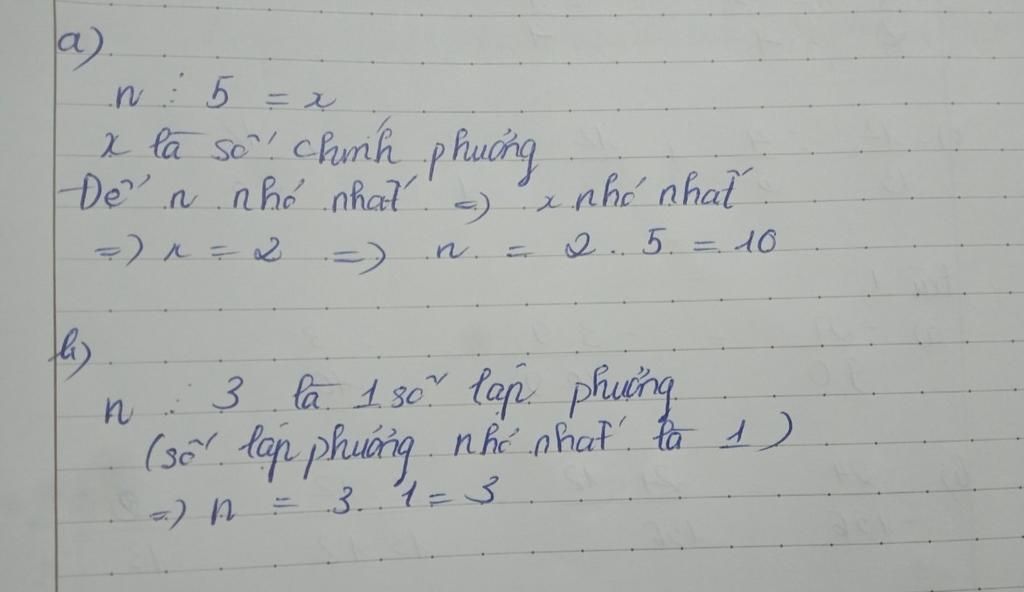 a)
n : 5 = x
x là số chính phương
Để n nhỏ nhất => x nhỏ nhất
=> x = 2 => n = 2 . 5 = 10
b)
n : 3 là 1 số lập phương
(số lập phương nhỏ nhất là 1)
=> n = 3 . 1 = 3